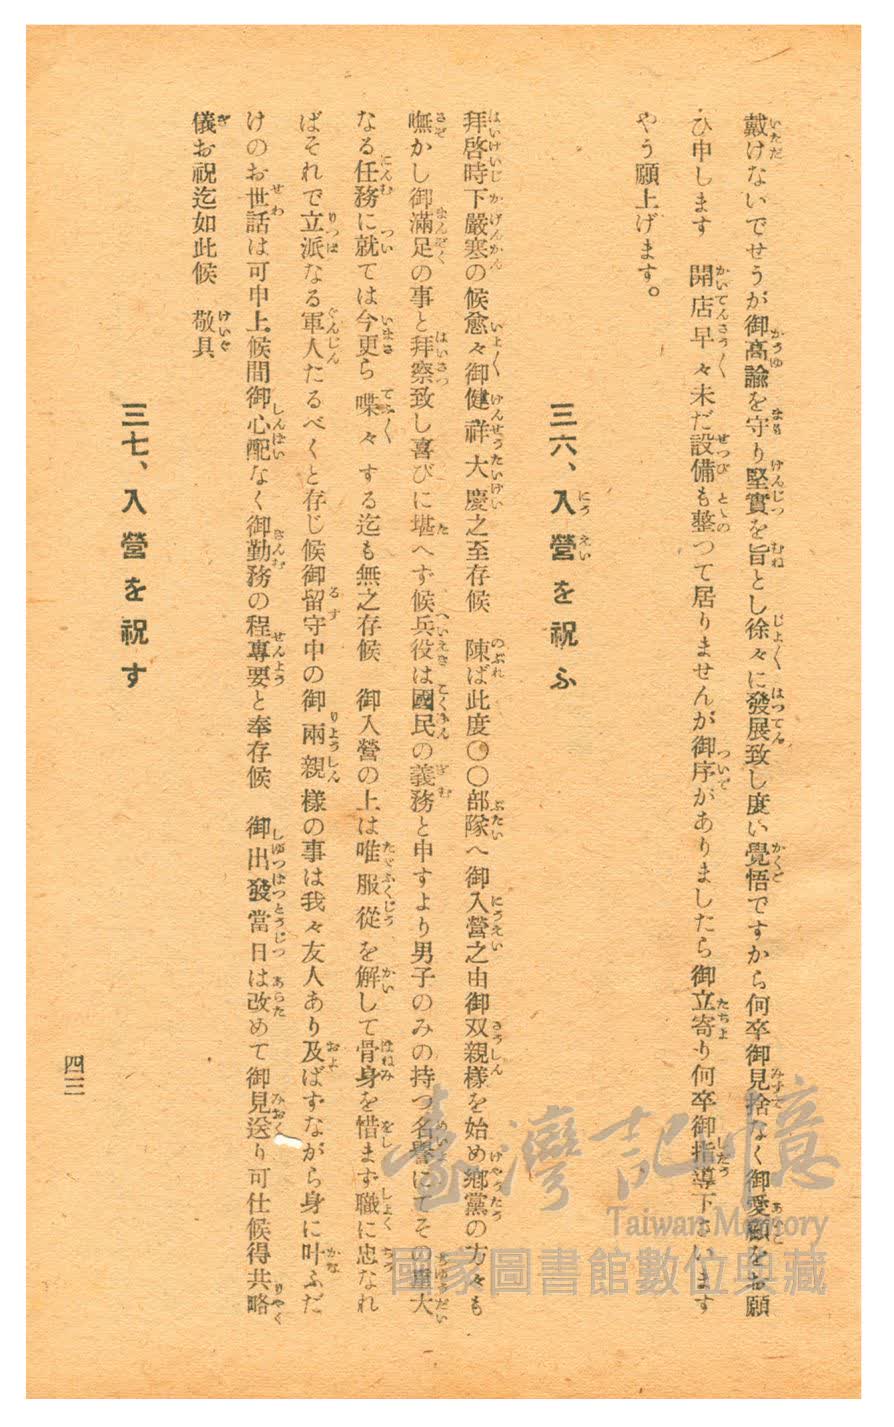 戴けないでせうが御高諭を守り堅實を旨とし徐々に發展致し度い覺悟ですから何卒御見捨なく御愛顧をお願
ひ申します　開店早々未だ設備も整つて居りませんが御序がありましたら御立寄り何卒御指導下さいます
やう願上げます。
三六、入營を祝ふ
拜啓時下嚴寒の候愈々御健祥大慶之至存候　陳ば此度〇〇部隊へ御入營之由御双親樣を始め鄕黨の方々も
嘸かし御滿足の事と拜察致し喜びに堪へず候兵役は國民の義務と申すより男子のみの持つ名譽にてその重大
なる任務に就ては今更ら喋々する迄も無之存候　御入營の上は唯服從を解して骨身を惜まず職に忠なれ
ばそれで立派なる軍人たるべくと存じ候御留守中の御兩親樣の事は我々友人あり及ばずながら身に叶ふだ
けのお世話は可申上候間御心配なく御勤務の程專要と奉存候　御出發當日は改めて御見送り可仕候得共略
儀お祝迄如此候　敬具
三七、入營を祝す
四三
臺灣記憶
Taiwan Memory
國家圖書館數位典藏